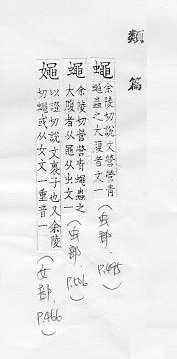 類篇
蠅 余陵切說文營營青
蠅蟲之大腹者文一
(虫部 P.495)
蠅 余陵切營營青蠅蟲之
大腹者从黽从虫文一
P.506)
以證切說文裹子也又余陵
切蠅或从女文一重音一
(女部 P.466)